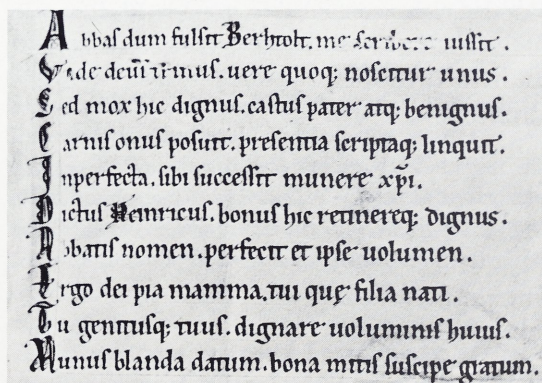 Abbas dum fulsit Berhtolt. me scribere iussit.
deu᷒ tim᷒. uere quoq; noscitur unus.
Sed mox hic dignus. castus pater atq; benignus.
Carnis onus posuit. presentia scriptaq; linquit.
Inperfecta. sibi successit munere xp̄i.
Dictus Heinricus. bonus hic retinereq; dignus.
Abbatis nomen. perfecit et ipse uolumen.
Ergo dei pia mamma. tui quę filia nati.
Tu genitusq; tuus. dignare uoluminis huius.
Munus blanda datum. bona mitis suscipe gratum.